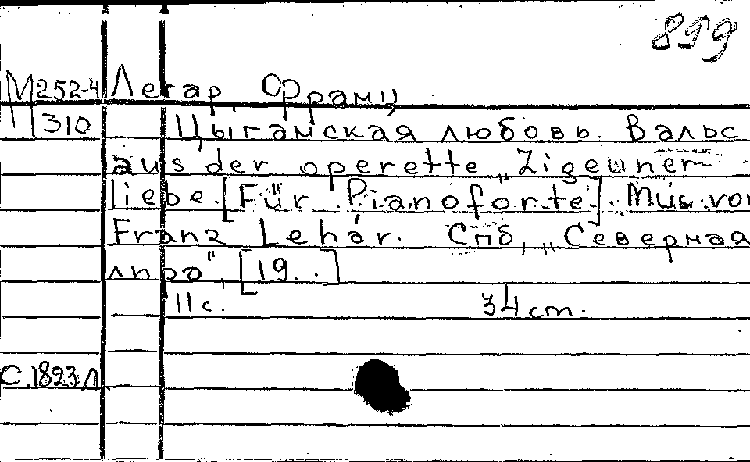 899
М252-4 Легар, Франц
310 Цыганская любовь. Вальс
aus der operette „Zigeuner-
liebe. [Für Pianoforte]. Mus. von
Franz Lehár. Спб, „Северная
лира", [19..]
11 с. 34 cm.
С.1823Л